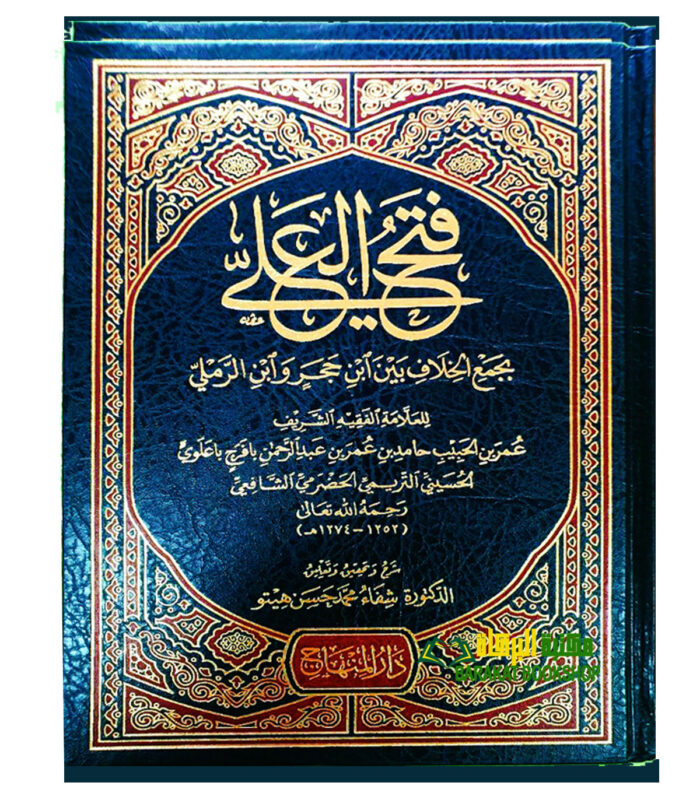 فَتْحُ العَلِيِّ
بِجَمْعِ الخِلَافِ بَيْنَ ٱبْنِ حَجَرٍ وَٱبْنِ الرَّمْلِيِّ
لِلعَلَّامَةِ الفَقِيهِ الشَّرِيفِ
عُمَرَبْنِ الحَبِيْبِ حَامِدِبْنِ عُمَرَبْنِ عَبْدِالرَّحْمٰنِ بَافَرَجٍ بَاعَلَوِيٍّ
الحُسَيْنِيِّ التَّرِيمِيِّ الحَضْرَمِيِّ الشَّافِعِيِّ
رَحِمَهُ اللهُ تَعَالَى
(١٢٥٢ - ١٢٧٤هـ)
شرح وتحقيق وتعليق
الدكتورة شفاء محمد حسن هيتو
دَارُ المِنْهَاجِ
مكتبة البركات
BARAKAT BOOKSHOP